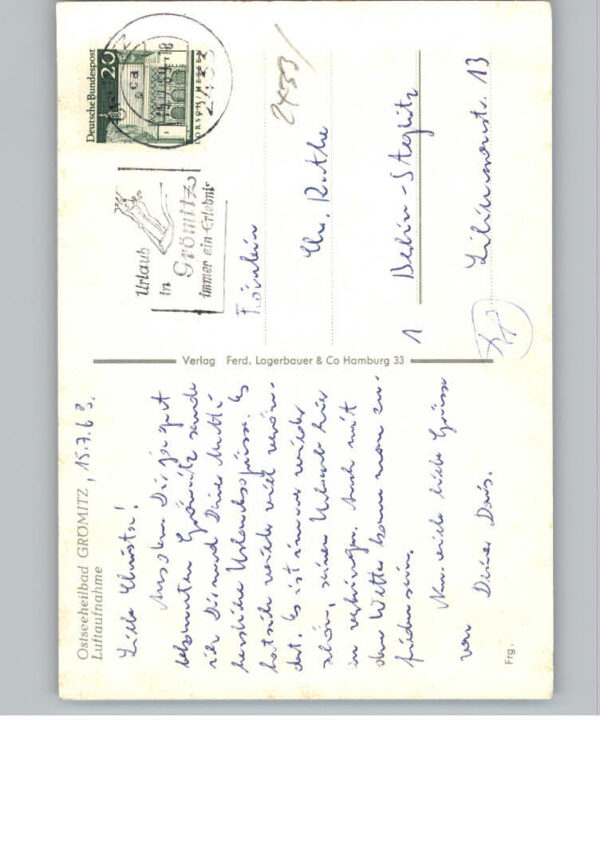 Ostseeheilbad GRÖMITZ, 15.7.68.
Luftaufnahme
Liebe Christa!
Aus dem Dir gut
bekannten Grömitz sende
ich Dir und Deiner Mutti
herzliche Urlaubsgrüsse. Es
hat sich wieder viel verän-
dert. Es ist immer wieder
schön, seinen Urlaub hier
zu verbringen. Auch mit
dem Wetter kann man zu-
frieden sein.
Nun viele liebe Grüsse
von Deiner
Frg.
Verlag Ferd. Lagerbauer & Co Hamburg 33
Deutsche Bundespost
20
LORSCH/HESSEN
2433
Urlaub
in
Grömitz
immer ein Erlebnis
2433
Fräulein
Chr.
1 Berlin-Steglitz
13